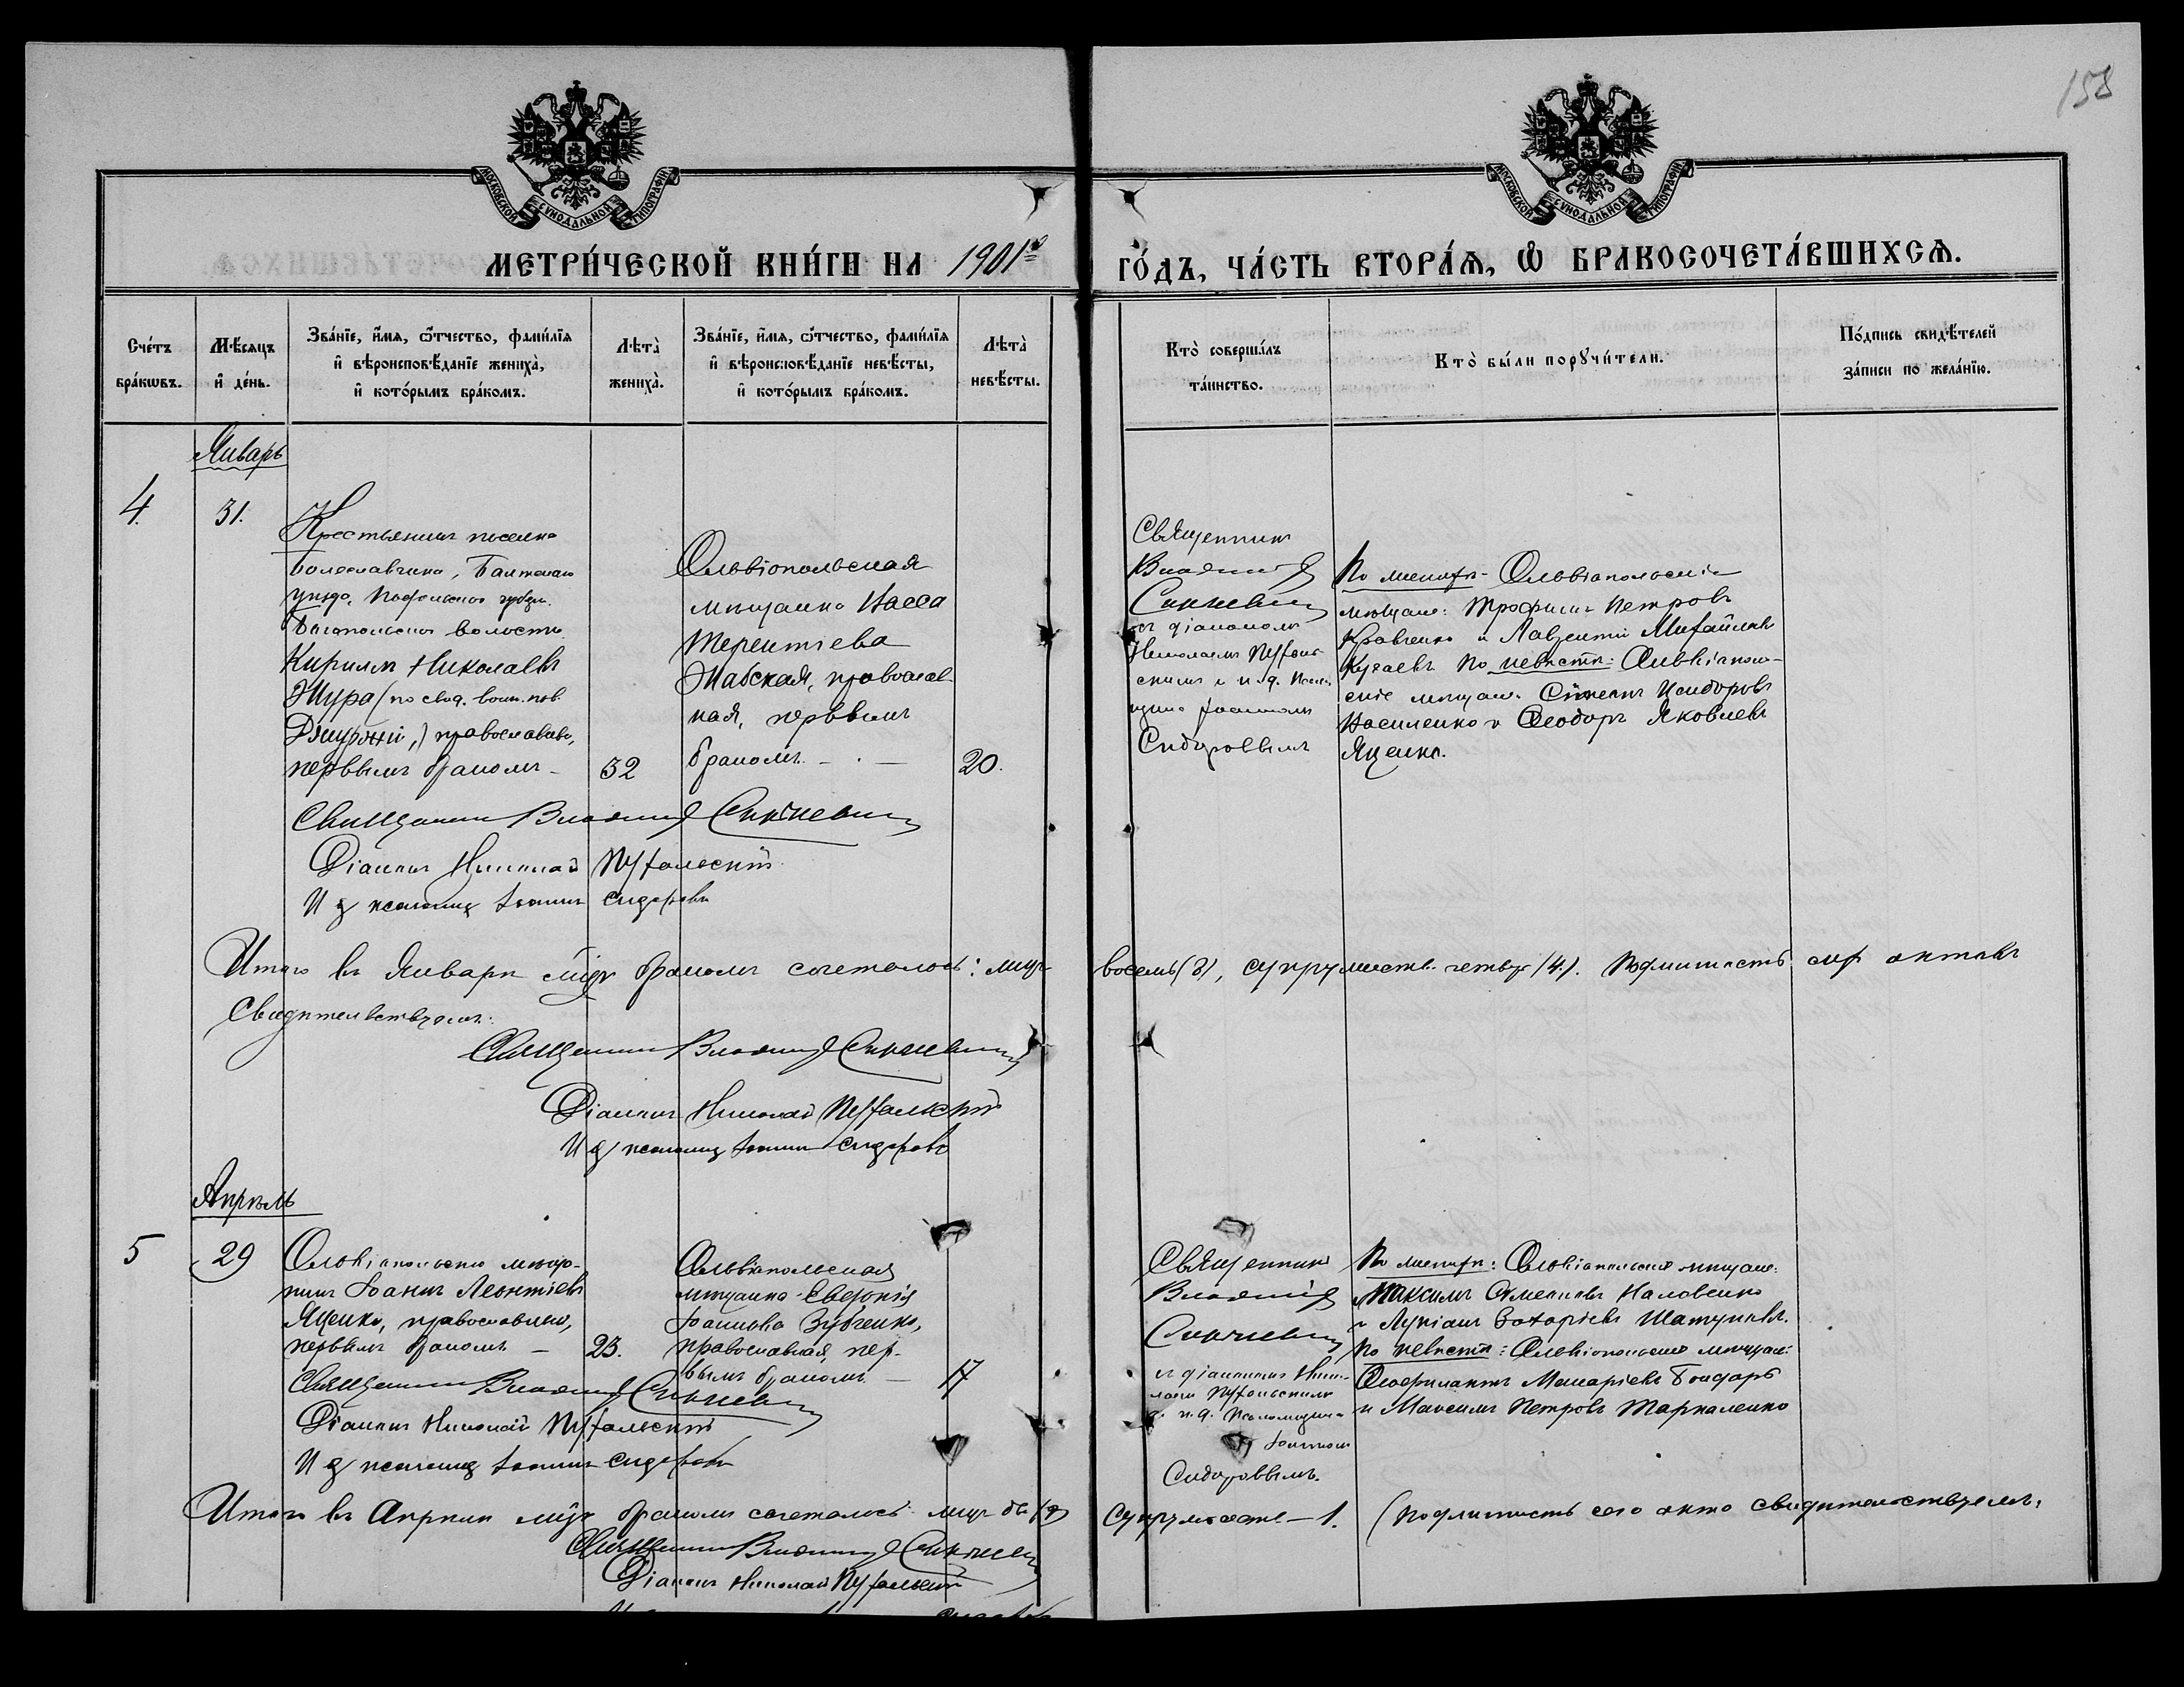 158
МОСКОВСКОЙ СѴНОДАЛЬНОЙ ТИПОГРАФІИ
МОСКОВСКОЙ СѴНОДАЛЬНОЙ ТИПОГРАФІИ
МЕТРИ́ЧЕСКОЙ КНИ́ГИ НА 1901й
ГО́ДЪ, ЧА́СТЬ ВТОРА́Ѧ, Ѡ БРАКОСОЧЕТА́ВШИХСѦ.
Сче́тъ бра́кωвъ.
Мѣ́сѧцъ и҆ де́нь.
Зва́нїе, и҆́мѧ, ѻ҆́тчество, фами́лїѧ
и҆ вѣроисповѣ́данїе жениха̀,
и҆ кото́рымъ бра́комъ.
Лѣта̀ жениха̀.
Зва́нїе, и҆́мѧ, ѻ҆́тчество, фами́лїѧ
и҆ вѣроисповѣ́данїе невѣ́сты,
и҆ кото́рымъ бра́комъ.
Лѣта̀ невѣ́сты.
Кто̀ соверша́лъ та́инство.
Кто̀ бы́ли порꙋчи́тели.
По́дпись свидѣ́телей за́писи по жела́нїю.
Январь
4.
31.
Крестьянинъ поселка
Болеславчика, Балтскаго
уѣзда, Подольской губерн.
Богопольской волости
Кириллъ Николаевъ
Жура (по свид. воин. пов.
православный,
первымъ бракомъ
32
Ольвіопольская
мѣщанка Васса
Терентіева
православ-
ная, первымъ
бракомъ
20.
Священникъ
Владимір
съ діакономъ
Николаемъ
и и. д. псалом-
щика Іоанномъ
Сидоровымъ
По женихѣ: Ольвіопольскіе
мѣщане: Трофимъ Петровъ
Кравченко и Лаврентій Михайловъ
По невѣстѣ: Ольвіополь-
скіе мѣщане: Исидоровъ
Василенко и Ѳеодоръ Яковлевъ
Яценко.
Священникъ Владимір
Діаконъ Николай
И д псаломщ Іоаннъ Сидоровъ
Итого въ Январѣ м-цѣ бракомъ сочеталось: муж. восемь (8), супружествъ четыре (4). Подлинность сихъ актовъ
Свидѣтельствуемъ:
Священникъ Владимір
Діаконъ Николай
И д псаломщ Іоаннъ Сидоровъ
Апрѣль
5
29
Ольвіопольскій мѣща-
нинъ Іоаннъ Леонтіевъ
Яценко, православный,
первымъ бракомъ
23.
Ольвіопольская
мѣщанка Евфонія
Іоаннова Зубченко,
православная, пер-
вымъ бракомъ
17
Священникъ
Владимір
съ діакономъ Нико-
лаемъ
и и. д. псаломщика
Іоанномъ
Сидоровымъ.
По женихѣ: Ольвіопольскіе мѣщане:
Максимъ
и Лукіанъ Захаріевъ
По невѣстѣ: Ольвіопольскіе мѣщане:
Ѳеофилактъ Макаріевъ Бондарь
и Максимъ Петровъ
Священникъ Владимір
Діаконъ Николай
И д псаломщ Іоаннъ Сидоровъ
Итого въ Апрѣлѣ м-цѣ бракомъ сочеталось муж. два (2) Супружество — 1. Подлинность сего акта свидѣтельствуемъ:
Священникъ Владимір
Діаконъ Николай